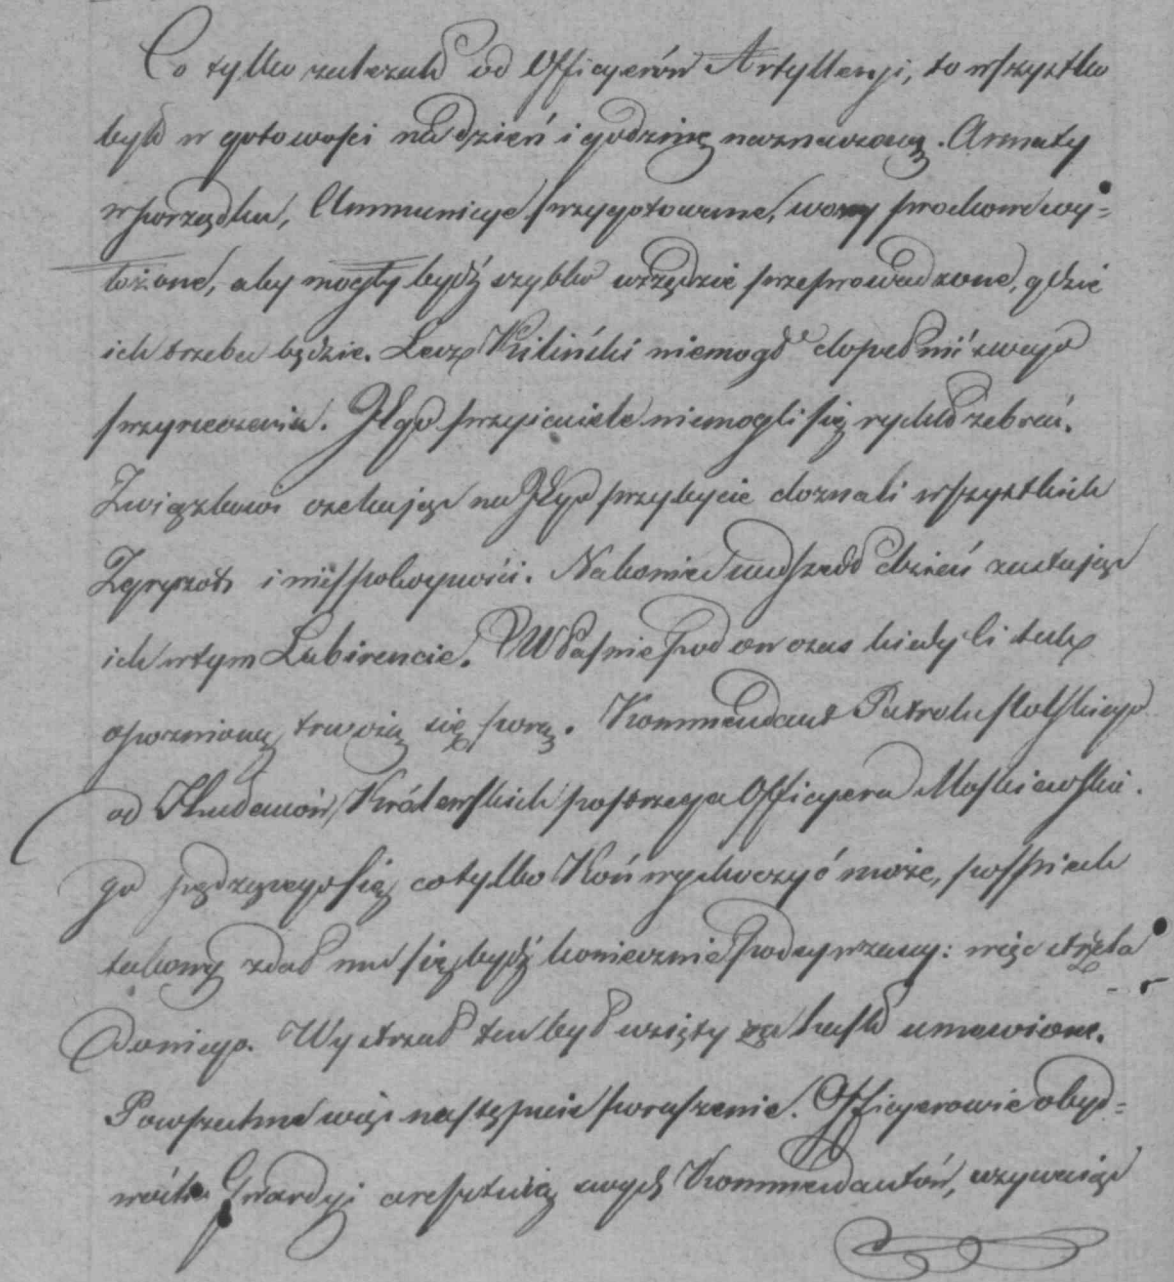 Co tylko zależało od Officyerów Artylleryi, to wszystko
było w gotowości na dzień i godzinę naznaczoną. Armaty
w porządku, Ammunicye przygotowane, wozy prochowe wy=
tożone, aby mogły bydź szybko wszędzie przeprowadzone, gdzie
ich trzeba będzie. Lecz Kiliński niemogł dopełnić swego
przyrzeczenia. Jego przyiaciele niemogli się rychło zebrać.
Związkowi czekając na Jego przybycie doznali wszystkich
Zgryzot i niespokoyności. Nakoniec nadszedł dzień zastając
ich w tym Labirencie. Właśnie pod on czas kiedy li tak
opoznioną trwożą się porą. Kommendant Patrolu Polskiego
od Sklepów Królewskich postrzega Officyera Moskiewskie.
go pędzącego się co tylko Koń wyskoczyć może, pośpiech
takowy zdał mu się bydź koniecznie podeyrzany: więc strzela
Doniego. Wystrzał ten był wzięty za hasło umowione.
Powszechne więc następuie poruszenie. Officyerowie obyd=
wóch Gwardyi aresztuią swych Kommendantów, wzywaiąc